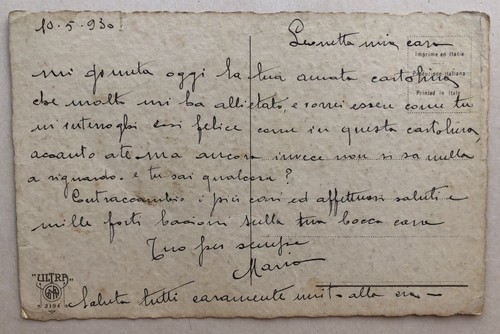 10.5.930!
Leonetta mia cara
Imprimé en Italie
Produzione italiana
Printed in Italy
mi giunta oggi la tua amata cartolina
che molto mi ha allietato, e vorrei essere come tu
mi interroghi così felice come in questa cartolina,
accanto a te. ma ancora invece non si sa nulla
a riguardo. e tu sai qualcosa?
Contraccambio i più cari ed affettuosi saluti e
mille forti bacioni sulla tua bocca cara
Tuo per sempre
Mario
"ULTRA"
Saluta tutti caramente unit. alla